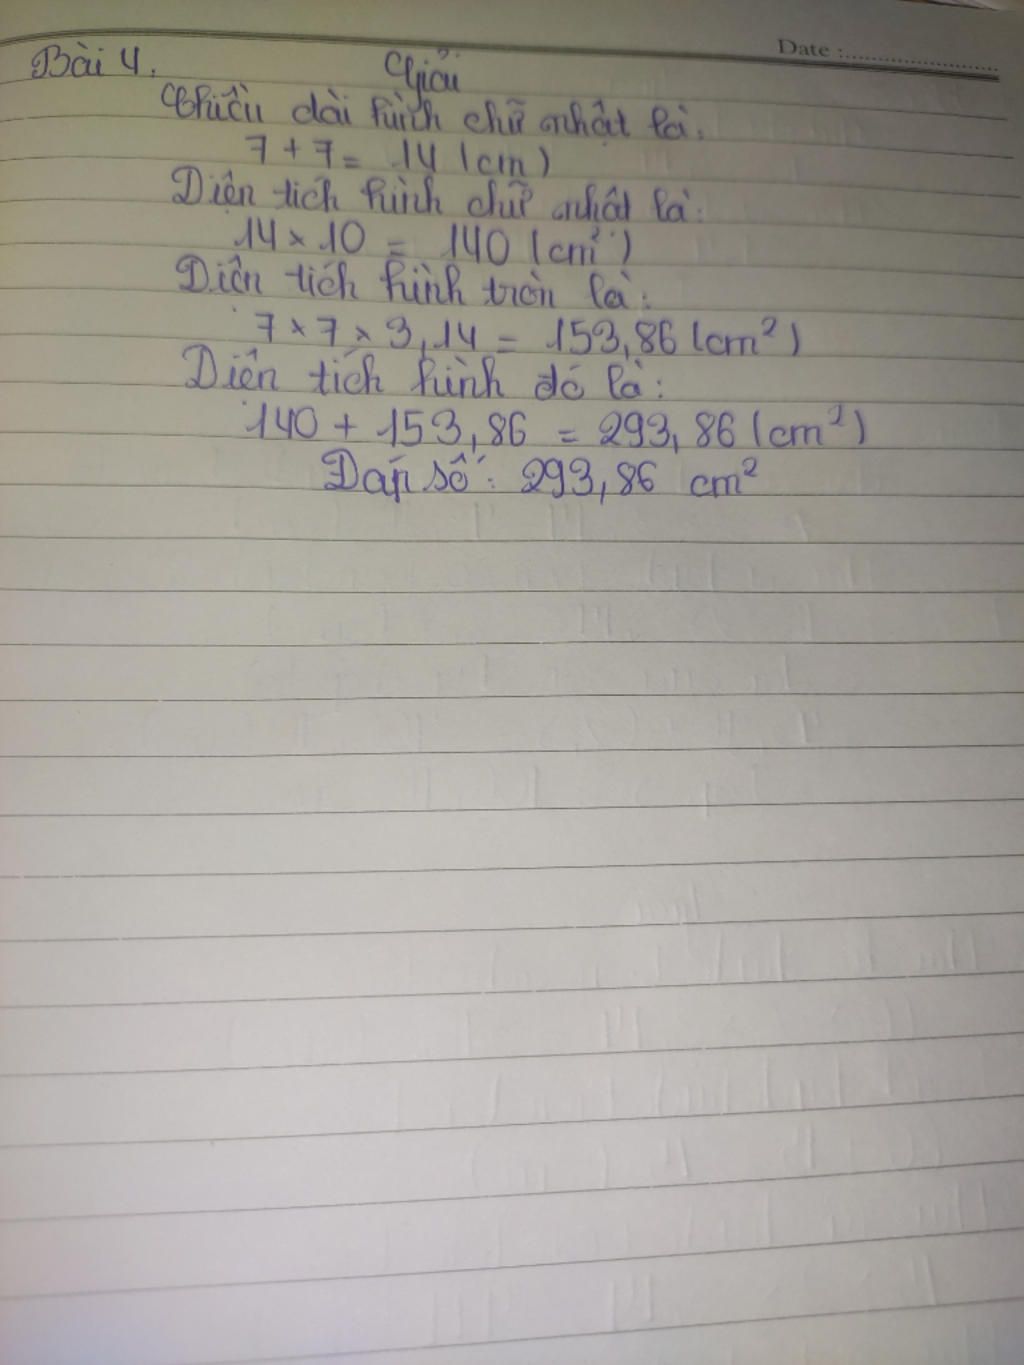 Date :
Bài 4. Giải
Chiều dài hình chữ nhật là:
7 + 7 = 14 (cm)
Diện tích hình chữ nhật là:
14 × 10 = 140 (cm²)
Diện tích hình tròn là:
7 × 7 × 3,14 = 153,86 (cm²)
Diện tích hình đó là:
140 + 153,86 = 293,86 (cm²)
Đáp số: 293,86 cm²